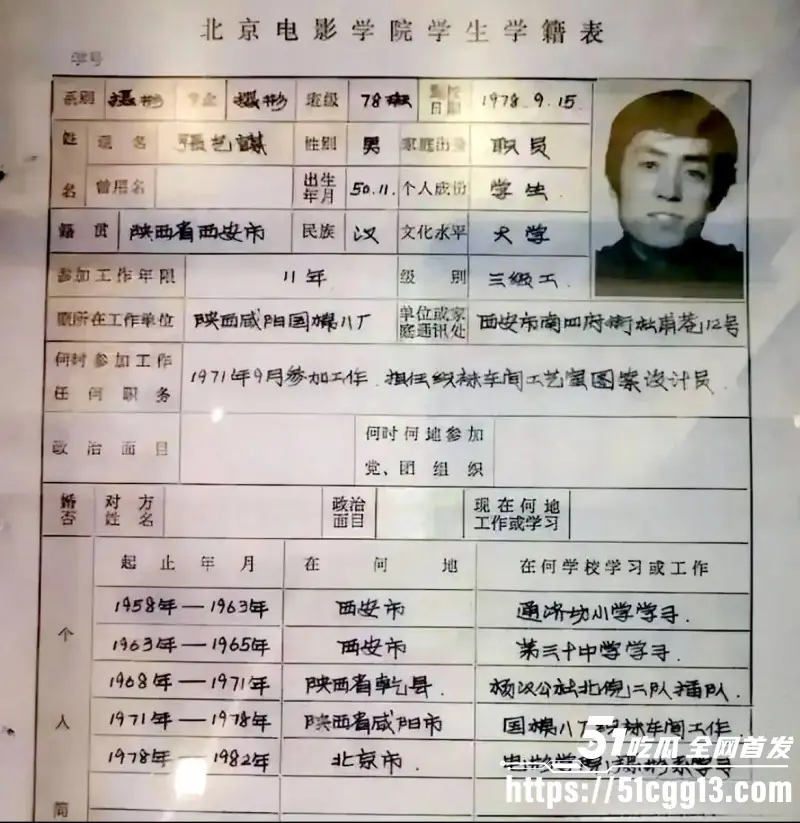 北京电影学院学生学籍表
学号
系别 摄影 专业 摄影 班级 78班 日期 1978.9.15.
姓名 现名 張艺謀 性别 男 家庭出身 职员
曾用名 出生年月 50.11. 个人成份 学生
籍贯 陕西省西安市 民族 汉 文化水平 大学
参加工作年限 11年 级别 三级工
原所在工作单位 陕西咸阳国棉八厂 单位或家庭通讯处 西安市南四府街杜甫巷12号
何时参加工作任何职务 1971年9月参加工作.担任织袜车间工艺室图案设计员.
政治面目 何时何地参加党、团组织
婚否 对方姓名 政治面目 现在何地工作或学习
个人简
起止年月 在何地 在何学校学习或工作
1958年—1963年 西安市 通济坊小学学习.
1963年—1965年 西安市 第三十中学学习.
1968年—1971年 陕西省乾县. 杨汉公社北倪二队插队.
1971年—1978年 陕西省咸阳市 国棉八厂织袜车间工作
1978年—1982年 北京市. 电影学院摄影系学习
51吃瓜 全网首发
https://51cgg13.com